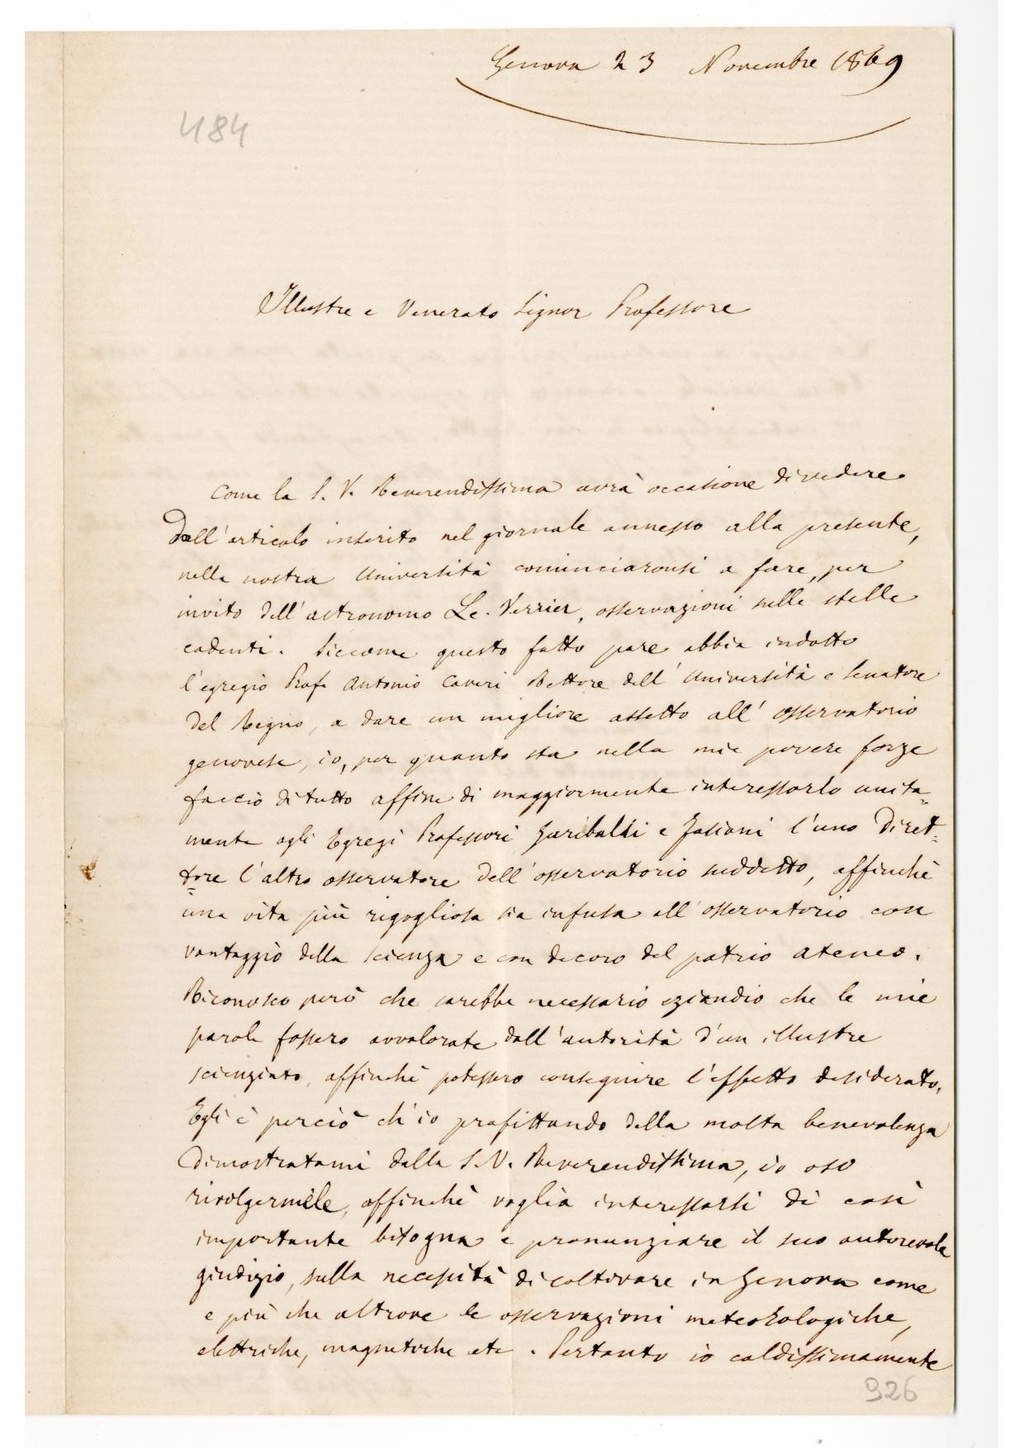 Genova 23 Novembre 1869
484
Illustre e Venerato Signor Professore
Come la S. V. Reverendissima avrà occasione di vedere
dall'articolo inserito nel giornale annesso alla presente,
nella nostra Università cominciaronsi a fare, per
invito dell'astronomo Le-Verrier, osservazioni sulle stelle
cadenti. Siccome questo fatto pare abbia indotto
l'egregio Prof. Antonio Caveri Rettore dell'Università e Senatore
del Regno, a dare un migliore assetto all'Osservatorio
genovese, io, per quanto sta nella mie povere forze
faccio di tutto affine di maggiormente interessarlo unita-
mente agli Egregi Professori Garibaldi e l'uno Diret-
tore l'altro osservatore dell'osservatorio suddetto, affinchè
una vita più rigogliosa sia infusa all'osservatorio con
vantaggio della scienza e con decoro del patrio ateneo.
Riconosco però che sarebbe necessario eziandio che le mie
parole fossero avvalorate dall'autorità d'un illustre
scienziato, affinchè potessero conseguire l'effetto desiderato.
Egli è perciò ch'io profittando della molta benevolenza
dimostratami dalla S.V. Reverendissima, io oso
rivolgermele, affinchè voglia interessarsi di così
importante bisogna e pronunziare il suo autorevole
giudizio, sulla necessità di coltivare in Genova come
e più che altrove le osservazioni meteorologiche,
elettriche, magnetiche etc. Pertanto io caldissimamente
926